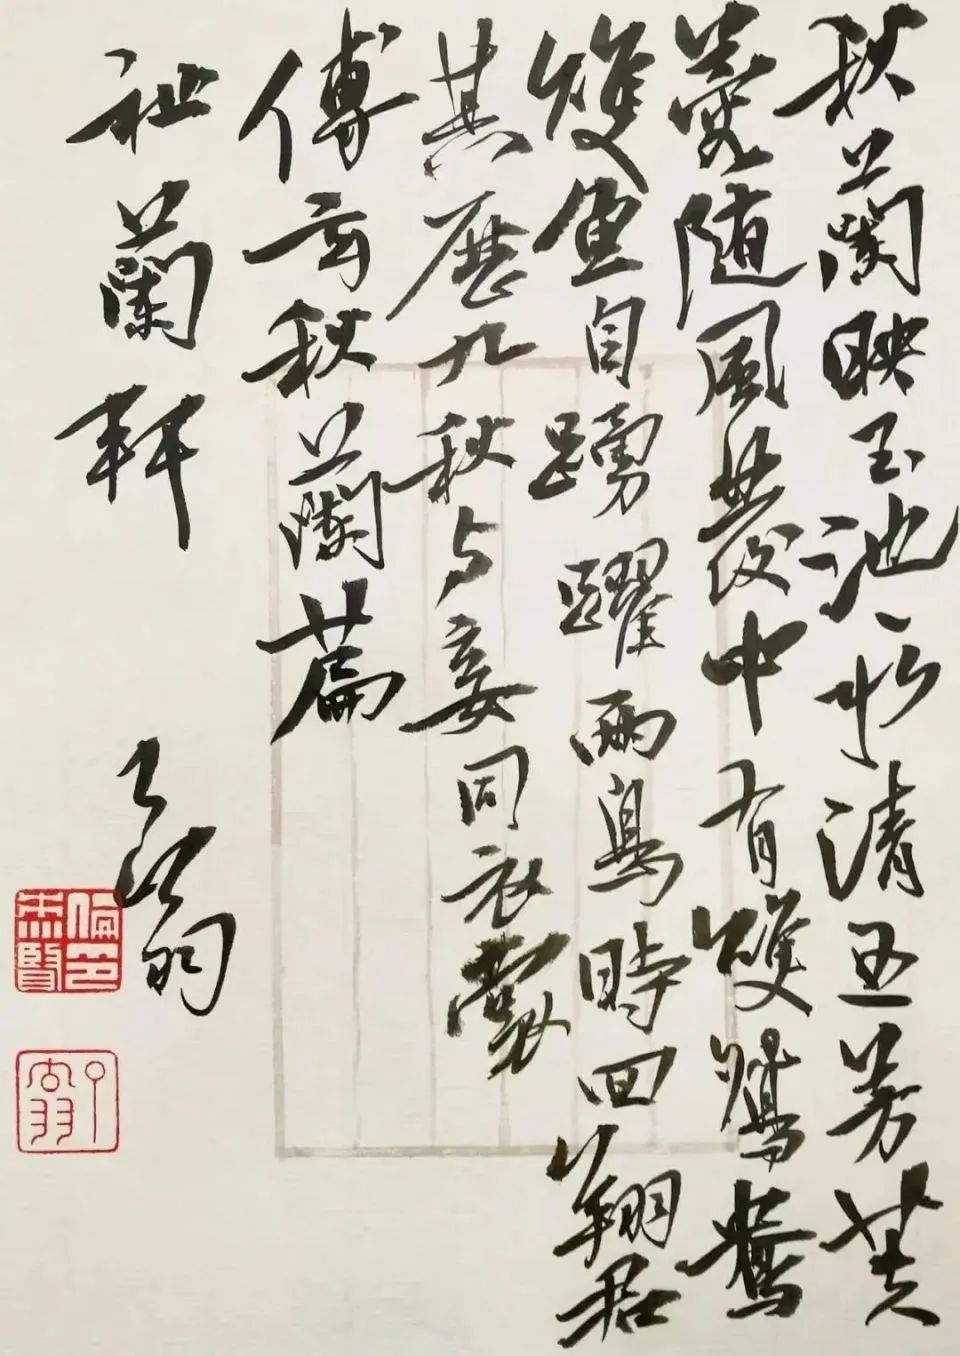 秋蘭映玉池、水清且芳芙
蓉随風發中有雙鴛鴦
雙魚自踴躍兩鳥時回翔君
其歷九秋与妾同衣裳
傅玄秋蘭篇
祉蘭軒 了翁
了翁